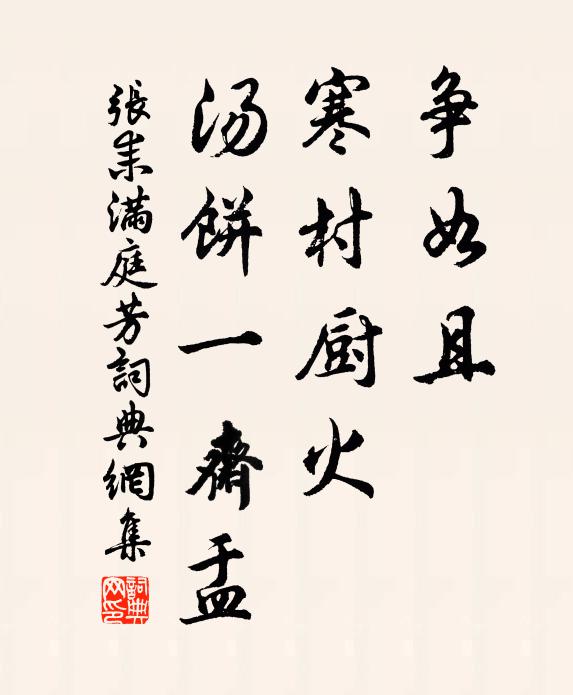 争如且
寒村厨火
汤餅一齊盂
張耒滿庭芳詞典網集
詞典网印